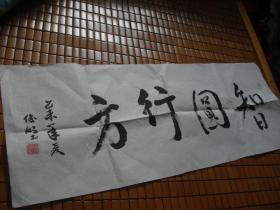 智圓行方
乙未年夏